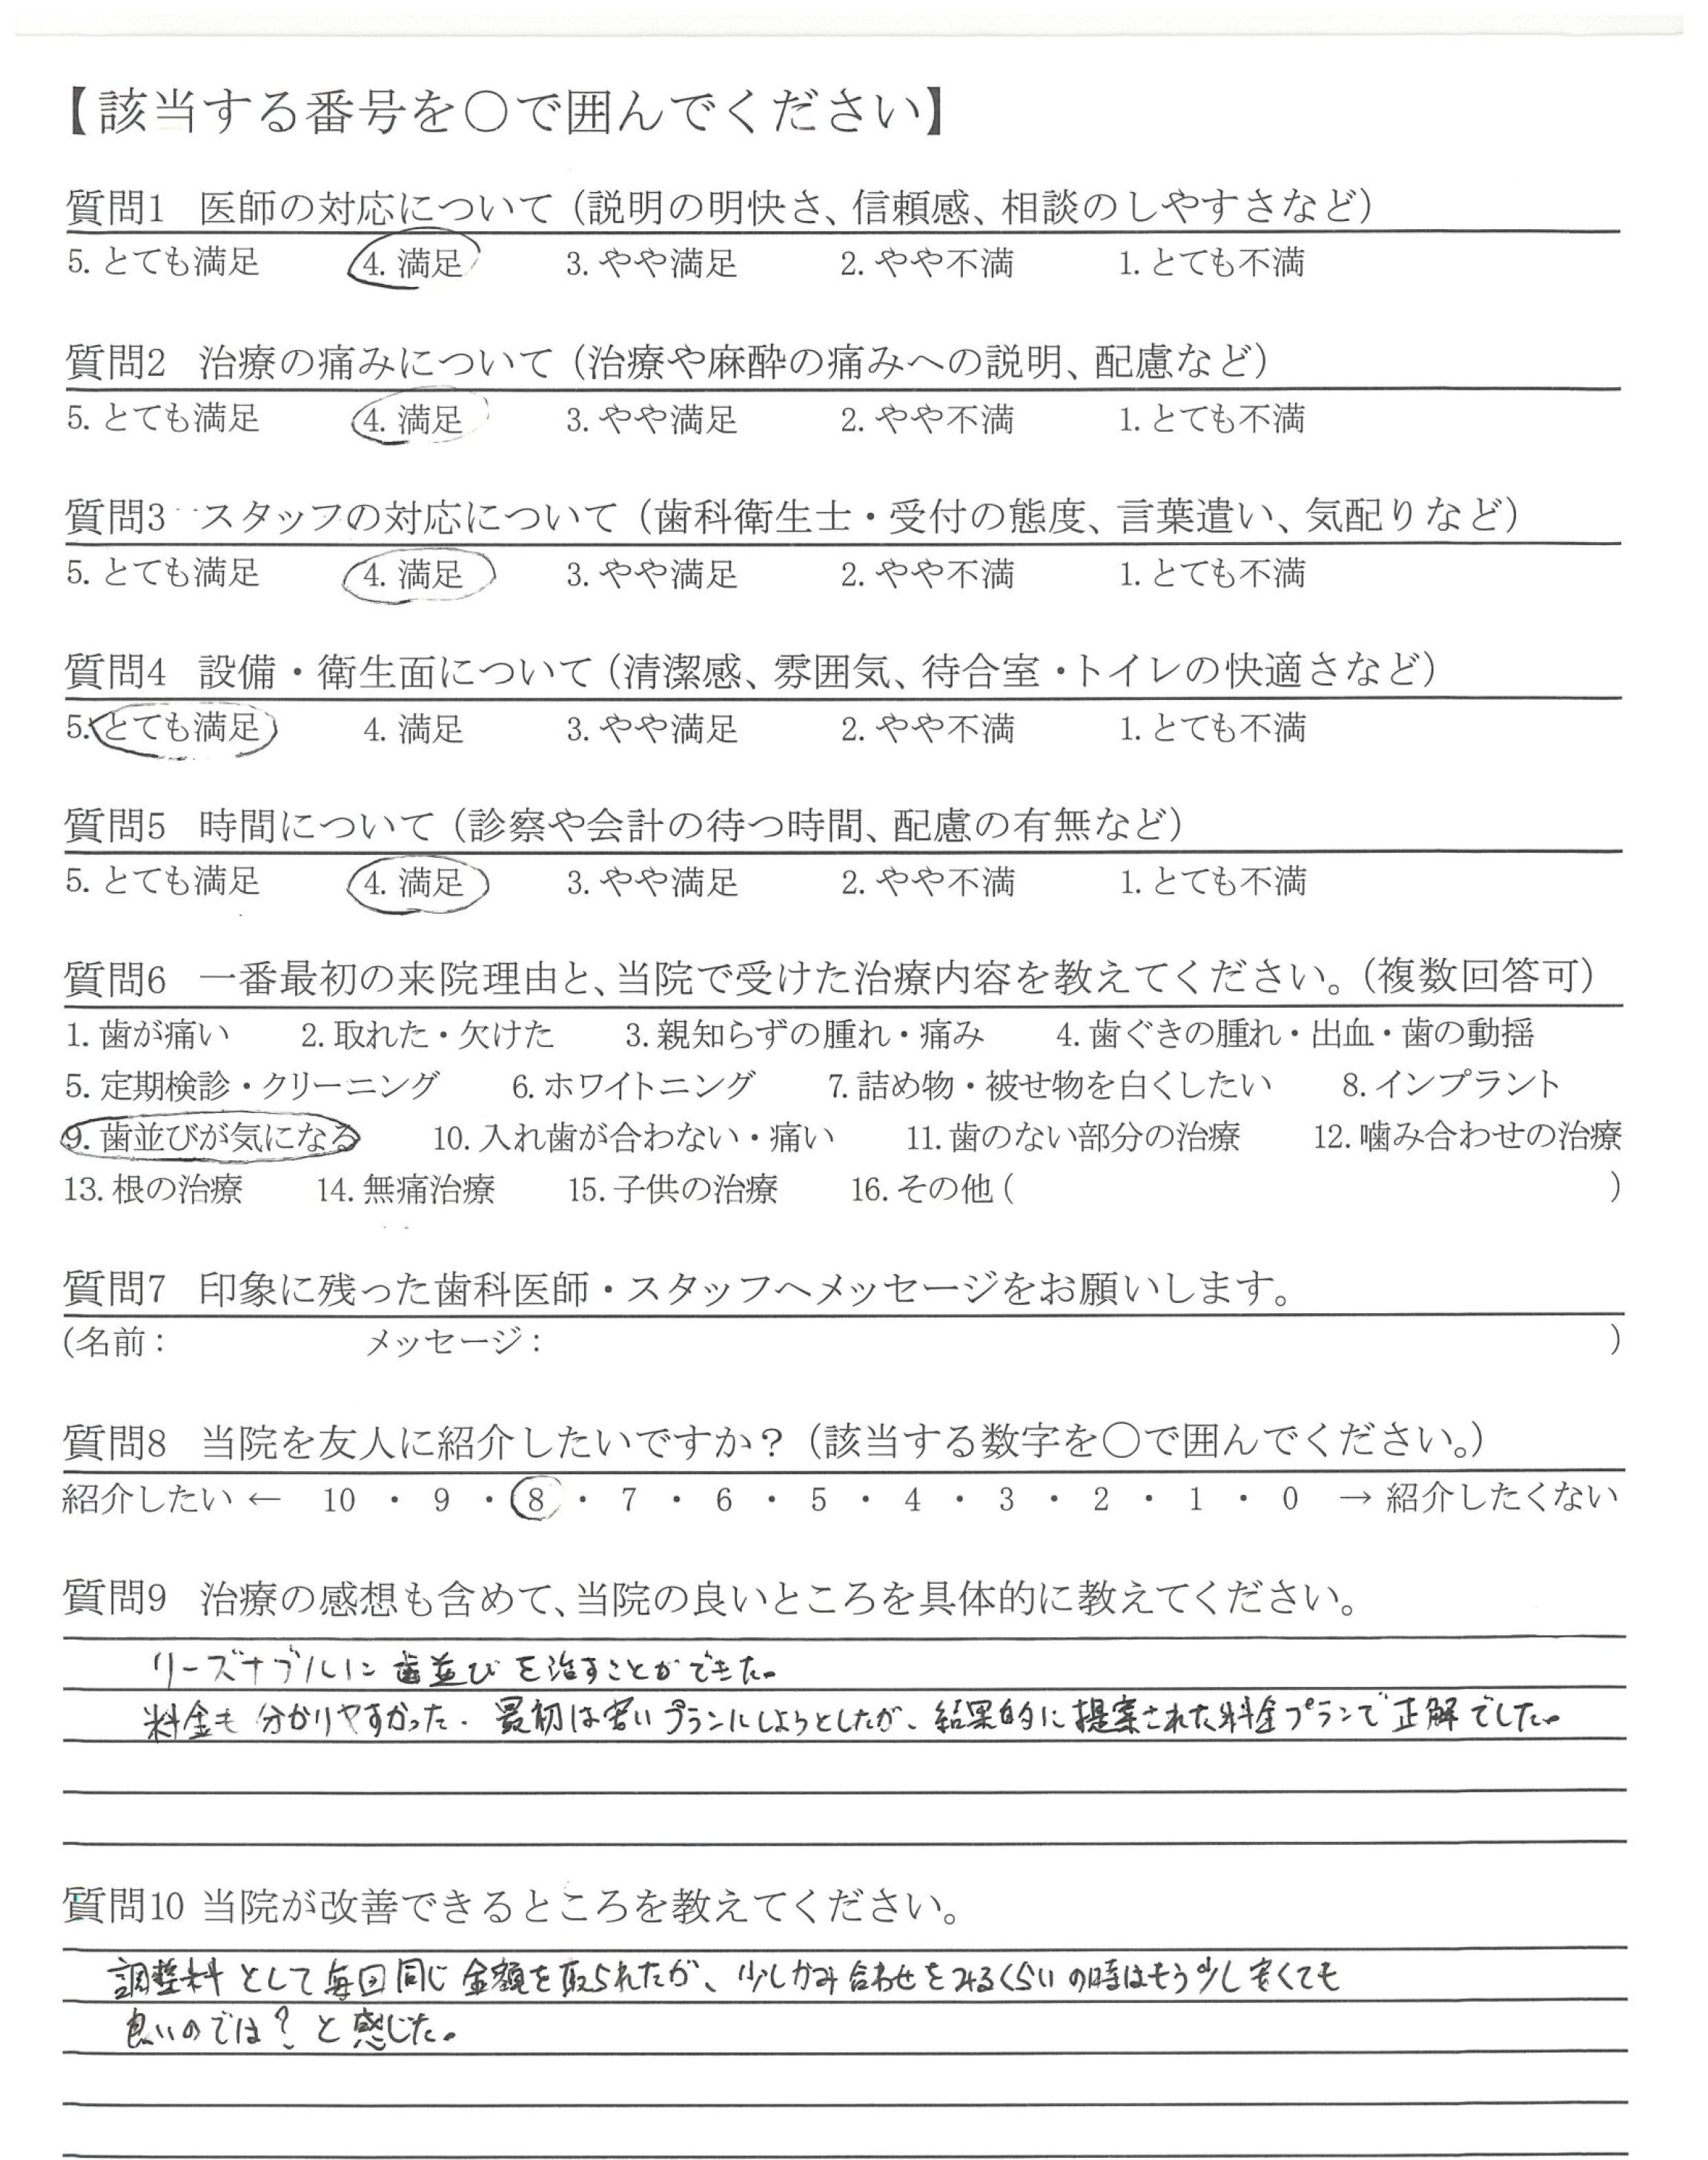 【該当する番号を○で囲んでください】
質問1 医師の対応について（説明の明快さ、信頼感、相談のしやすさなど）
5. とても満足 4. 満足 3. やや満足 2. やや不満 1. とても不満
質問2 治療の痛みについて（治療や麻酔の痛みへの説明、配慮など）
5. とても満足 4. 満足 3. やや満足 2. やや不満 1. とても不満
質問3 スタッフの対応について（歯科衛生士・受付の態度、言葉遣い、気配りなど）
5. とても満足 4. 満足 3. やや満足 2. やや不満 1. とても不満
質問4 設備・衛生面について（清潔感、雰囲気、待合室・トイレの快適さなど）
5. とても満足 4. 満足 3. やや満足 2. やや不満 1. とても不満
質問5 時間について（診察や会計の待つ時間、配慮の有無など）
5. とても満足 4. 満足 3. やや満足 2. やや不満 1. とても不満
質問6 一番最初の来院理由と、当院で受けた治療内容を教えてください。（複数回答可）
1. 歯が痛い 2. 取れた・欠けた 3. 親知らずの腫れ・痛み 4. 歯ぐきの腫れ・出血・歯の動揺
5. 定期検診・クリーニング 6. ホワイトニング 7. 詰め物・被せ物を白くしたい 8. インプラント
9. 歯並びが気になる 10. 入れ歯が合わない・痛い 11. 歯のない部分の治療 12. 噛み合わせの治療
13. 根の治療 14. 無痛治療 15. 子供の治療 16. その他（ ）
質問7 印象に残った歯科医師・スタッフへメッセージをお願いします。
（名前： メッセージ： ）
質問8 当院を友人に紹介したいですか？（該当する数字を○で囲んでください。）
紹介したい ← 10 ・ 9 ・ 8 ・ 7 ・ 6 ・ 5 ・ 4 ・ 3 ・ 2 ・ 1 ・ 0 → 紹介したくない
質問9 治療の感想も含めて、当院の良いところを具体的に教えてください。
リーズナブルに歯並びを治すことができた。
料金も分かりやすかった。最初は安いプランにしようとしたが、結果的に提案された料金プランで正解でした。
質問10 当院が改善できるところを教えてください。
調整料として毎回同じ金額を取られたが、少しかみ合わせをみるくらいの時はもう少し安くても
良いのでは？と感じた。